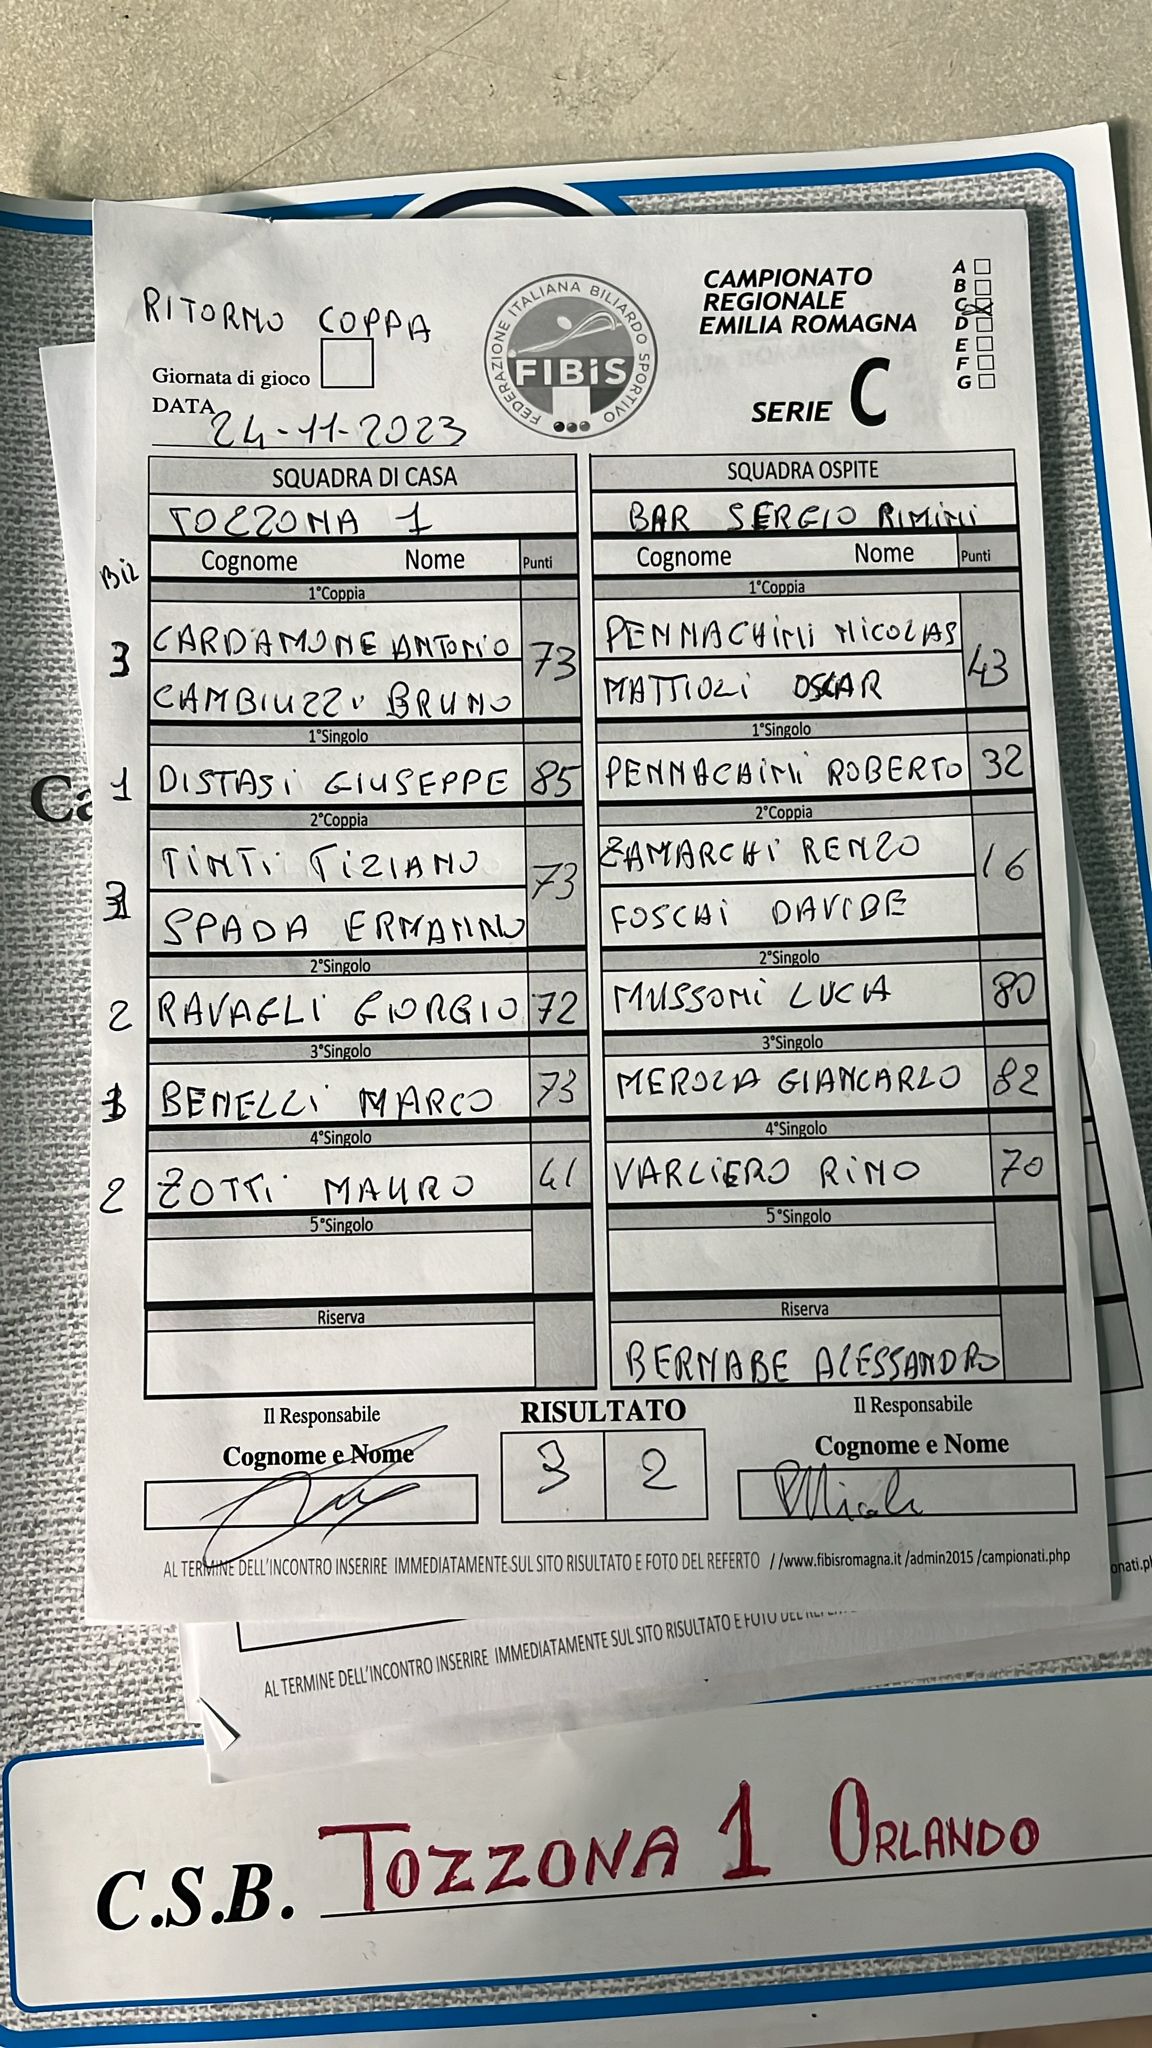 RITORNO COPPA
Giornata di gioco
DATA 24-11-2023
FEDERAZIONE ITALIANA BILIARDO SPORTIVO
FIBiS
CAMPIONATO
REGIONALE
EMILIA ROMAGNA
SERIE C
A
B
C
D
E
F
G
SQUADRA DI CASA
TOZZONA 1
Bil
Cognome Nome Punti
1°Coppia
3 CARDAMONE ANTONIO 73
CAMBIUZZI BRUNO
1°Singolo
1 DISTASI GIUSEPPE 85
2°Coppia
3 TINTI TIZIANO 73
SPADA ERMANNO
2°Singolo
2 RAVAGLI GIORGIO 72
3°Singolo
BENELLI MARCO 73
4°Singolo
2 ZOTTI MAURO 41
5°Singolo
Riserva
SQUADRA OSPITE
BAR SERGIO RIMINI
Cognome Nome Punti
1°Coppia
PENNACHINI NICOLAS 43
MATTIOLI OSCAR
1°Singolo
PENNACHINI ROBERTO 32
2°Coppia
ZAMARCHI RENZO 16
FOSCHI DAVIDE
2°Singolo
MUSSONI LUCIA 80
3°Singolo
MEROLA GIANCARLO 82
4°Singolo
VARLIERO RINO 70
5°Singolo
Riserva
BERNABE ALESSANDRO
Il Responsabile
Cognome e Nome
RISULTATO
3 2
Il Responsabile
Cognome e Nome
AL TERMINE DELL'INCONTRO INSERIRE IMMEDIATAMENTE SUL SITO RISULTATO E FOTO DEL REFERTO //www.fibisromagna.it /admin2015 /campionati.php
AL TERMINE DELL'INCONTRO INSERIRE IMMEDIATAMENTE SUL SITO RISULTATO E FOTO DEL
C.S.B. TOZZONA 1 ORLANDO